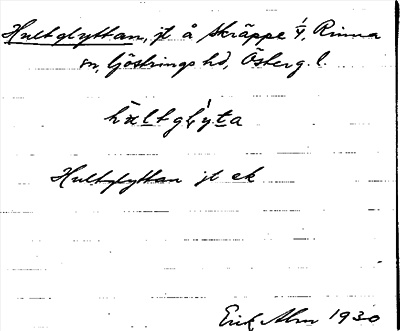 Hultglyttan, jt å Skräppe 1/4, Rinna
sn, Göstrings hd, Österg. l.
hultglyta
Hultglyttan jt ek
Erik Alm 1930